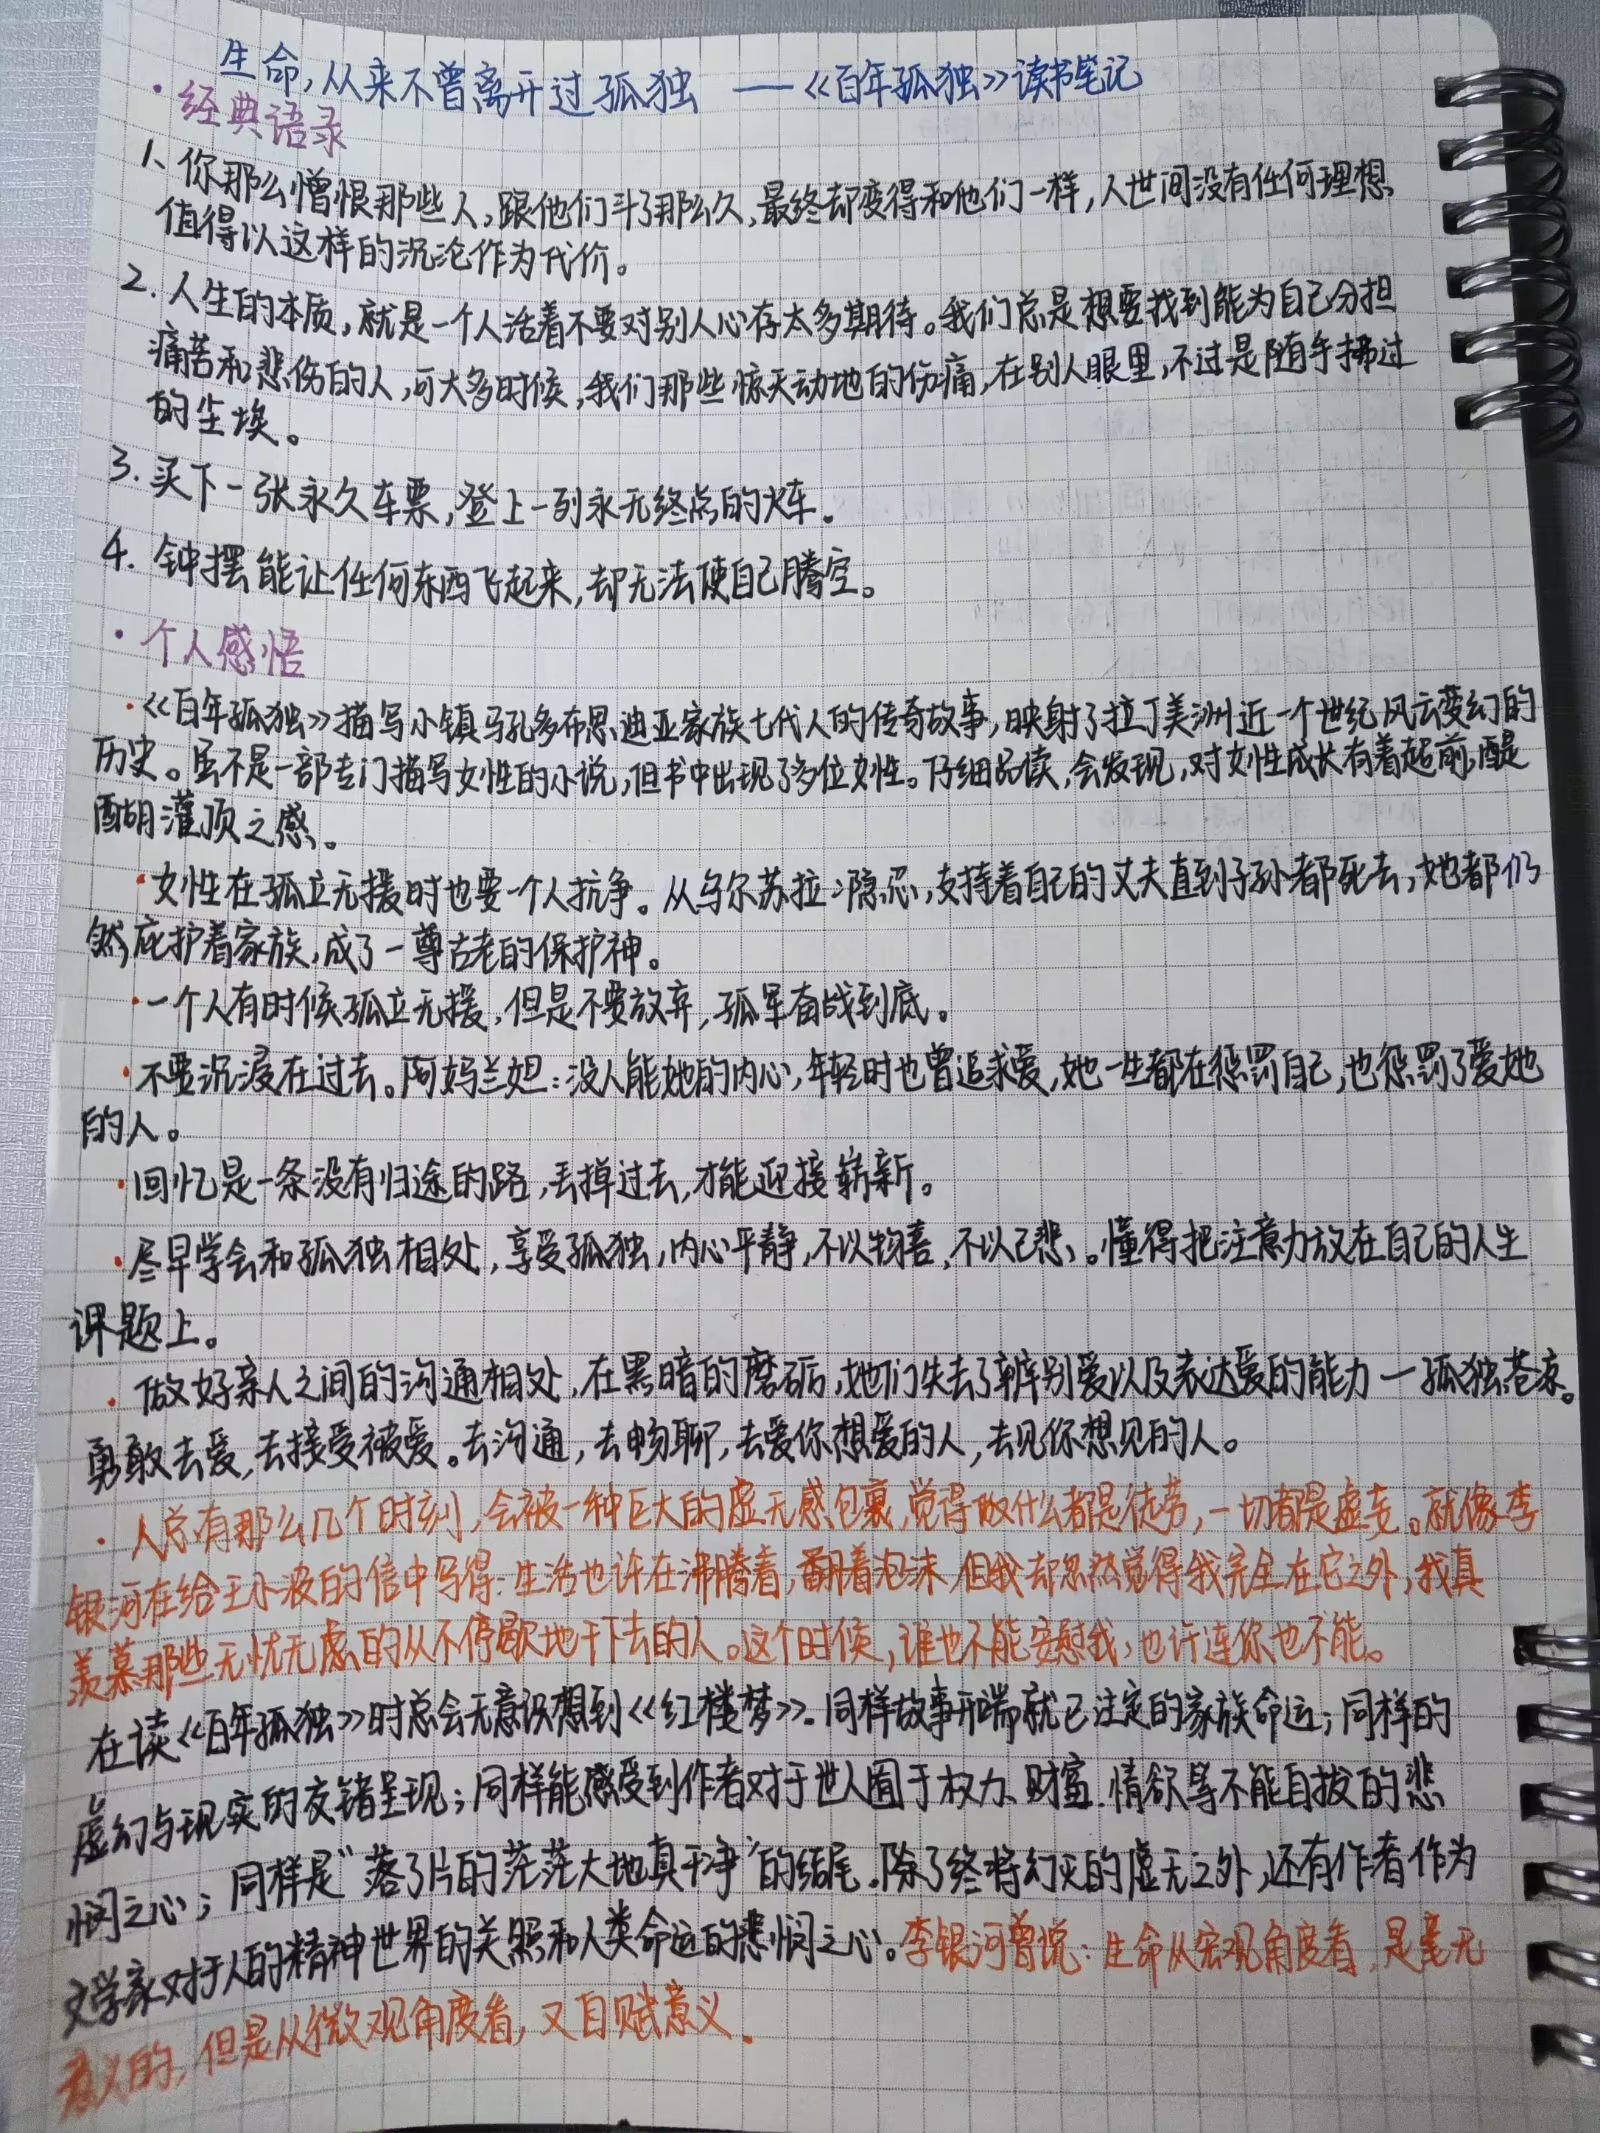 生命,从来不曾离开过孤独 ——《百年孤独》读书笔记
·经典语录
1、你那么憎恨那些人,跟他们斗了那么久,最终却变得和他们一样,人世间没有任何理想
值得以这样的沉沦作为代价。
2. 人生的本质,就是一个人活着不要对别人心存太多期待。我们总是想要找到能为自己分担
痛苦和悲伤的人,可大多时候,我们那些惊天动地的伤痛,在别人眼里,不过是随手拂过
的尘埃。
3. 买下一张永久车票,登上一列永无终点的火车.
4. 钟摆能让任何东西飞起来,却无法使自己腾空。
·个人感悟
·《百年孤独》描写小镇马孔多布恩迪亚家族七代人的传奇故事,映射了拉丁美洲近一个世纪风云变幻的
历史。虽不是一部专门描写女性的小说,但书中出现了多位女性。仔细品读,会发现,对女性成长有着超前,醍
醐灌顶之感。
·女性在孤立无援时也要一个人抗争。从乌尔苏拉:隐忍,支持着自己的丈夫直到子孙都死去,她都仍
然庇护着家族,成了一尊古老的保护神。
·一个人有时候孤立无援,但是不要放弃,孤军奋战到底。
·不要沉浸在过去。阿玛兰妲:没人能她的内心,年轻时也曾追求爱,她一生都在惩罚自己,也惩罚了爱她
的人。
·回忆是一条没有归途的路,丢掉过去,才能迎接崭新。
·尽早学会和孤独相处,享受孤独,内心平静,不以物喜,不以己悲、。懂得把注意力放在自己的人生
课题上。
·做好亲人之间的沟通相处,在黑暗的磨砺,她们失去了辨别爱以及表达爱的能力一孤独苍凉。
勇敢去爱,去接受被爱。去沟通,去畅聊,去爱你想爱的人,去见你想见的人。
·人总有那么几个时刻,会被一种巨大的虚无感包裹,觉得做什么都是徒劳,一切都是虚妄。就像李
银河在给王小波的信中写得:生活也许在沸腾着,翻着泡沫,但我却忽然觉得我完全在它之外,我真
羡慕那些无忧无虑的从不停歇地干下去的人。这个时候,谁也不能安慰我,也许连你也不能。
在读《百年孤独》时总会无意识想到《红楼梦》.同样故事开端就已注定的家族命运;同样的
虚幻与现实的交错呈现;同样能感受到作者对于世人囿于权力、财富.情欲等不能自拔的悲
悯之心;同样是“落了片的茫茫大地真干净”的结尾.除了终将幻灭的虚无之外,还有作者作为
文学家对于人的精神世界的关照和人类命运的悲悯之心。李银河曾说:生命从宏观角度看,是毫无
意义的,但是从微观角度看,又自赋意义.